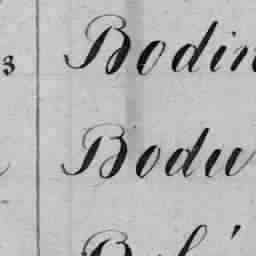 s Bodin
Bodu